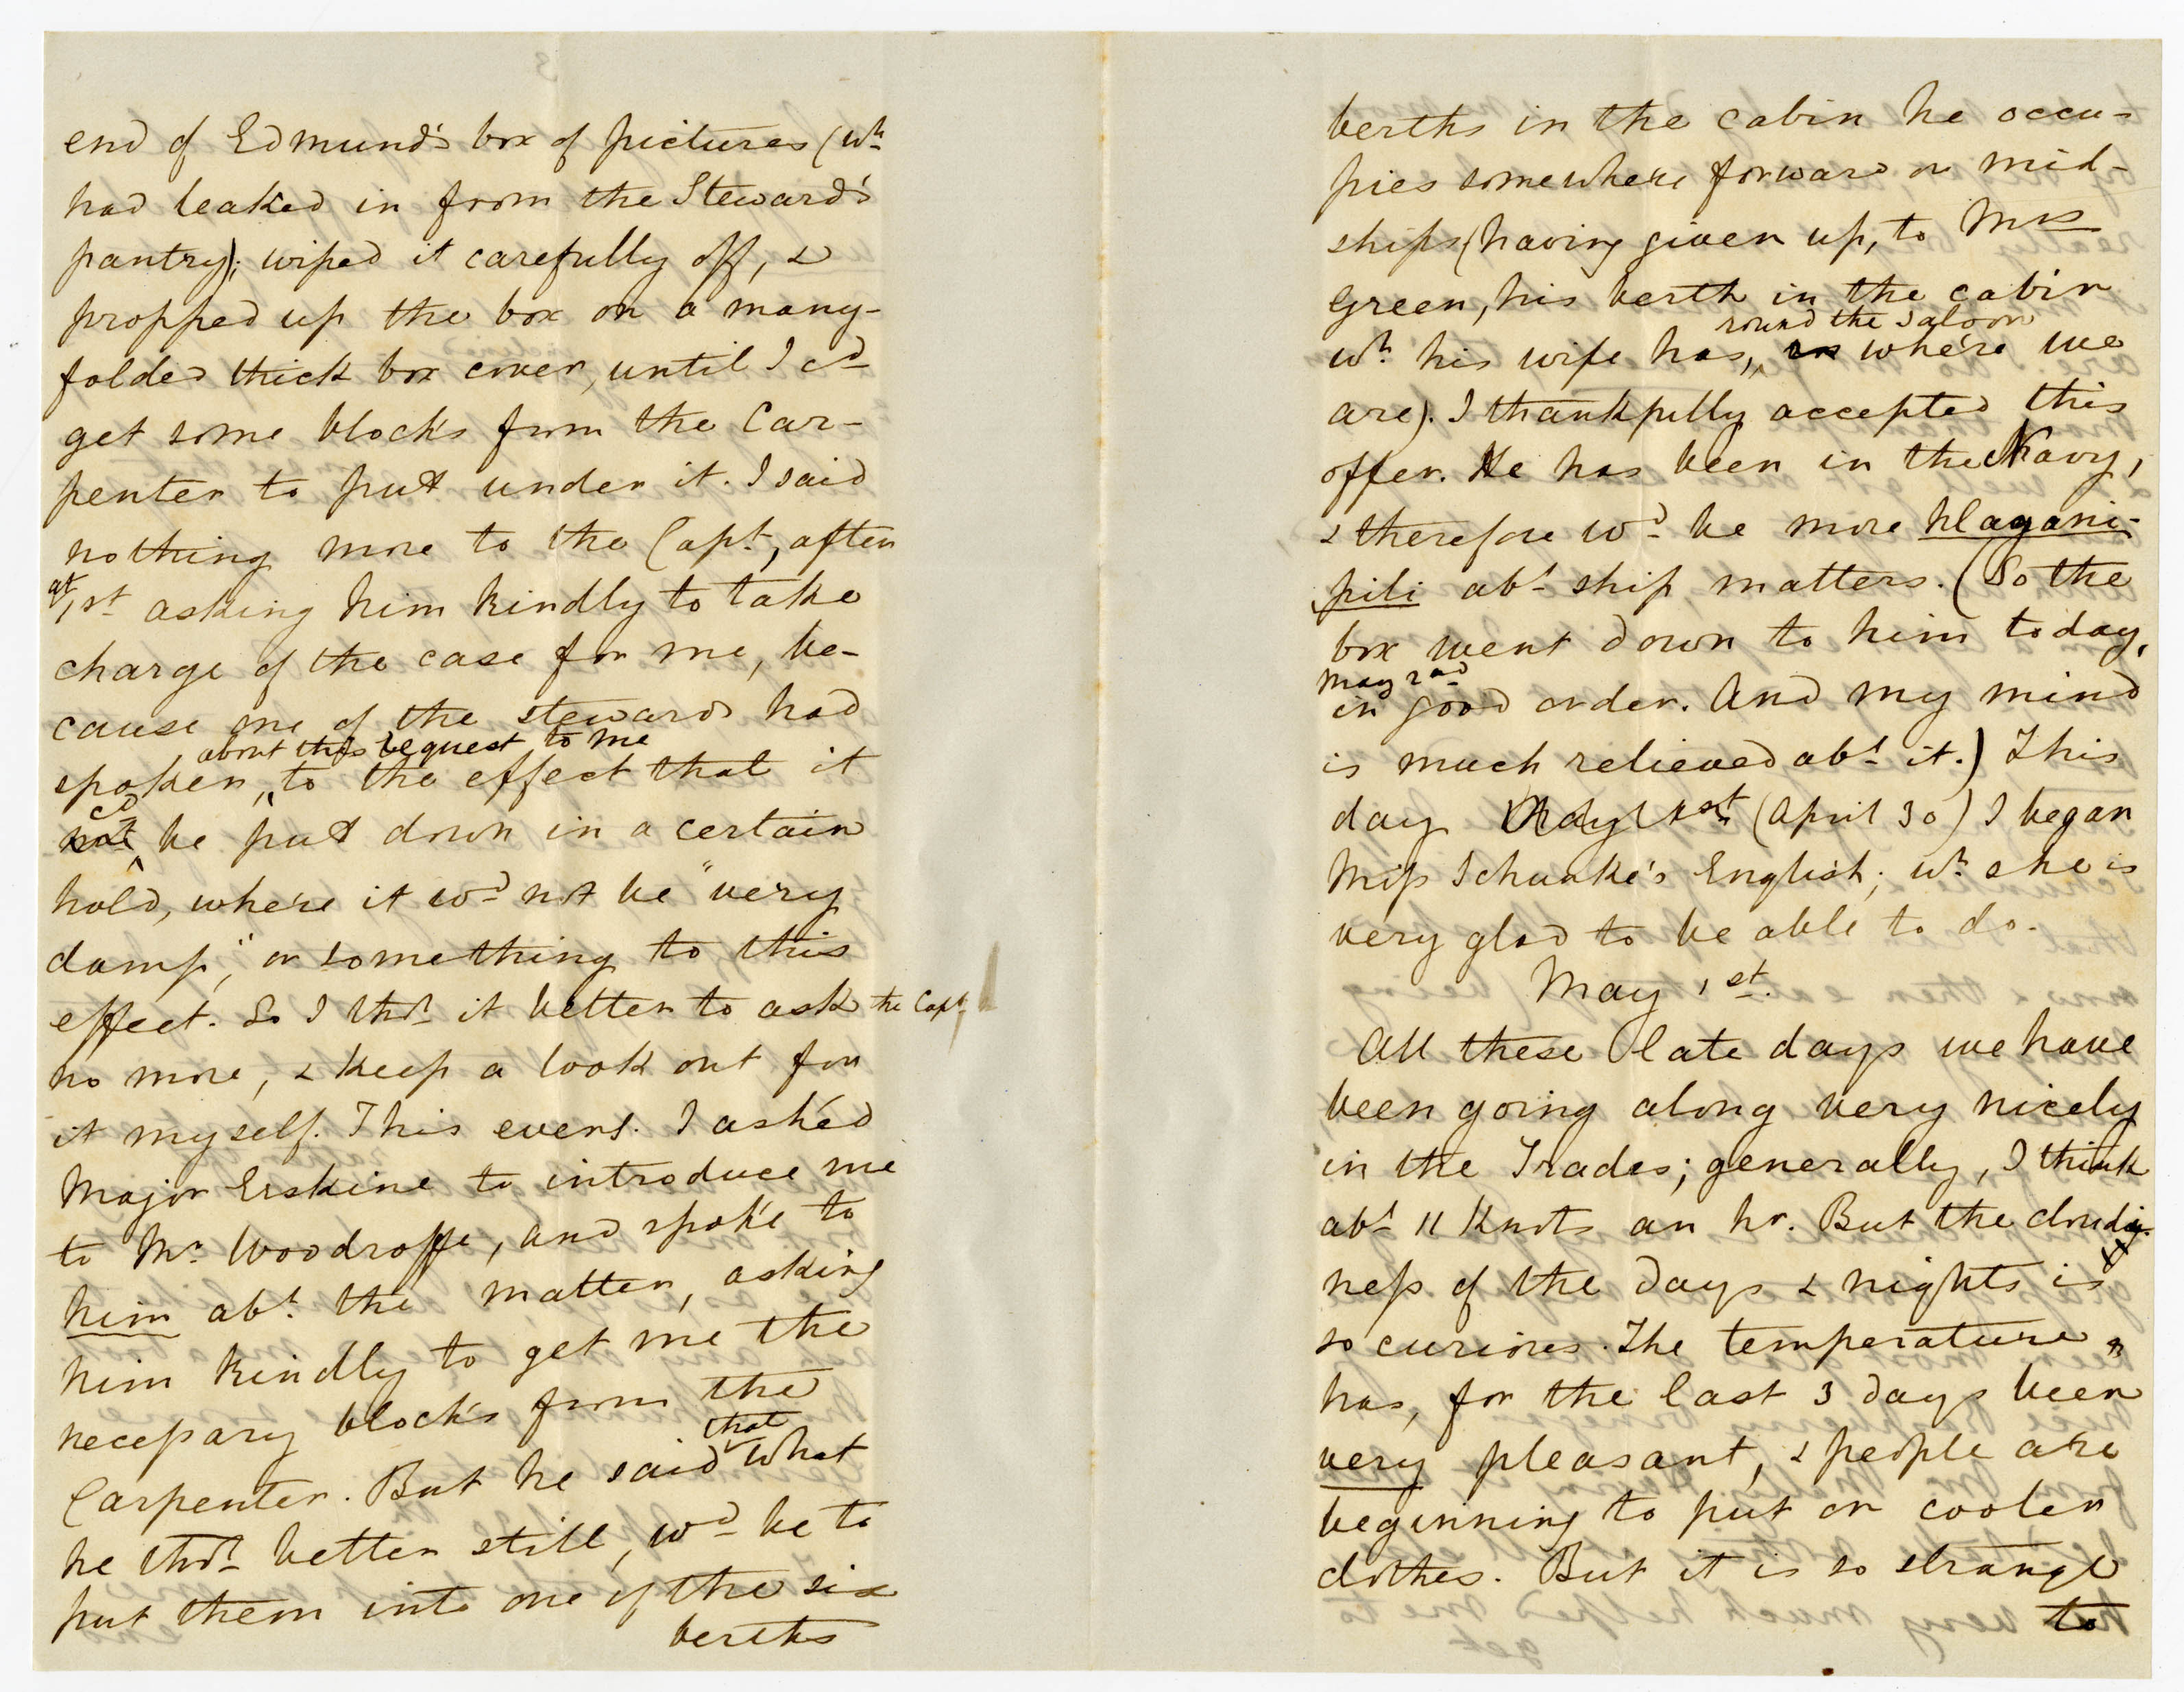 end of Edmund's box of pictures (wh
had leaked in from the Steward's
pantry); wiped it carefully off, &
propped up the box on a many-
folded thick box cover, until I cd
get some blocks from the Car-
penter to put under it. I said
nothing more to the Capt, after
at 1st asking him kindly to take
charge of the case for me, be-
cause one of the stewards had
about this request to me
spoken, to the effect that it
cd
not be put down in a certain
hold, where it wd not be "very
damp", or something to this
effect. So I tht it better to ask the Capt
no more, & keep a look out for
it myself. This eveng. I asked
Major Erskine to introduce me
to Mr Woodroffe, and spoke to
him abt the matter, asking
him kindly to get me the
necessary blocks from the
Carpenter. But he said that what
he tht better still, wd be to
put them into one of the six
berths
berths in the cabin he occu-
pies somewhere forward or mid-
ships (having given up, to Mrs
Green, his berth in the cabin
round the saloon
wh his wife has, where we
are). I thankfully accepted this
offer. He has been in the Navy,
& therefore wd be more
abt ship matters. (So the
box went down to him today,
May 2nd
in good order. And my mind
is much relieved abt it.) This
day May 1st (April 30) I began
Miss Schunke's English; wh she is
very glad to be able to do.
May 1st.
All these late days we have
been going along very nicely
in the Trades; generally, I think
abt 11 Knots an hr. But the cloudi-
ness of the days & nights is
so curious. The temperature
has, for the last 3 days been
very pleasant, & people are
beginning to put on cooler
clothes. But it is so strange
to